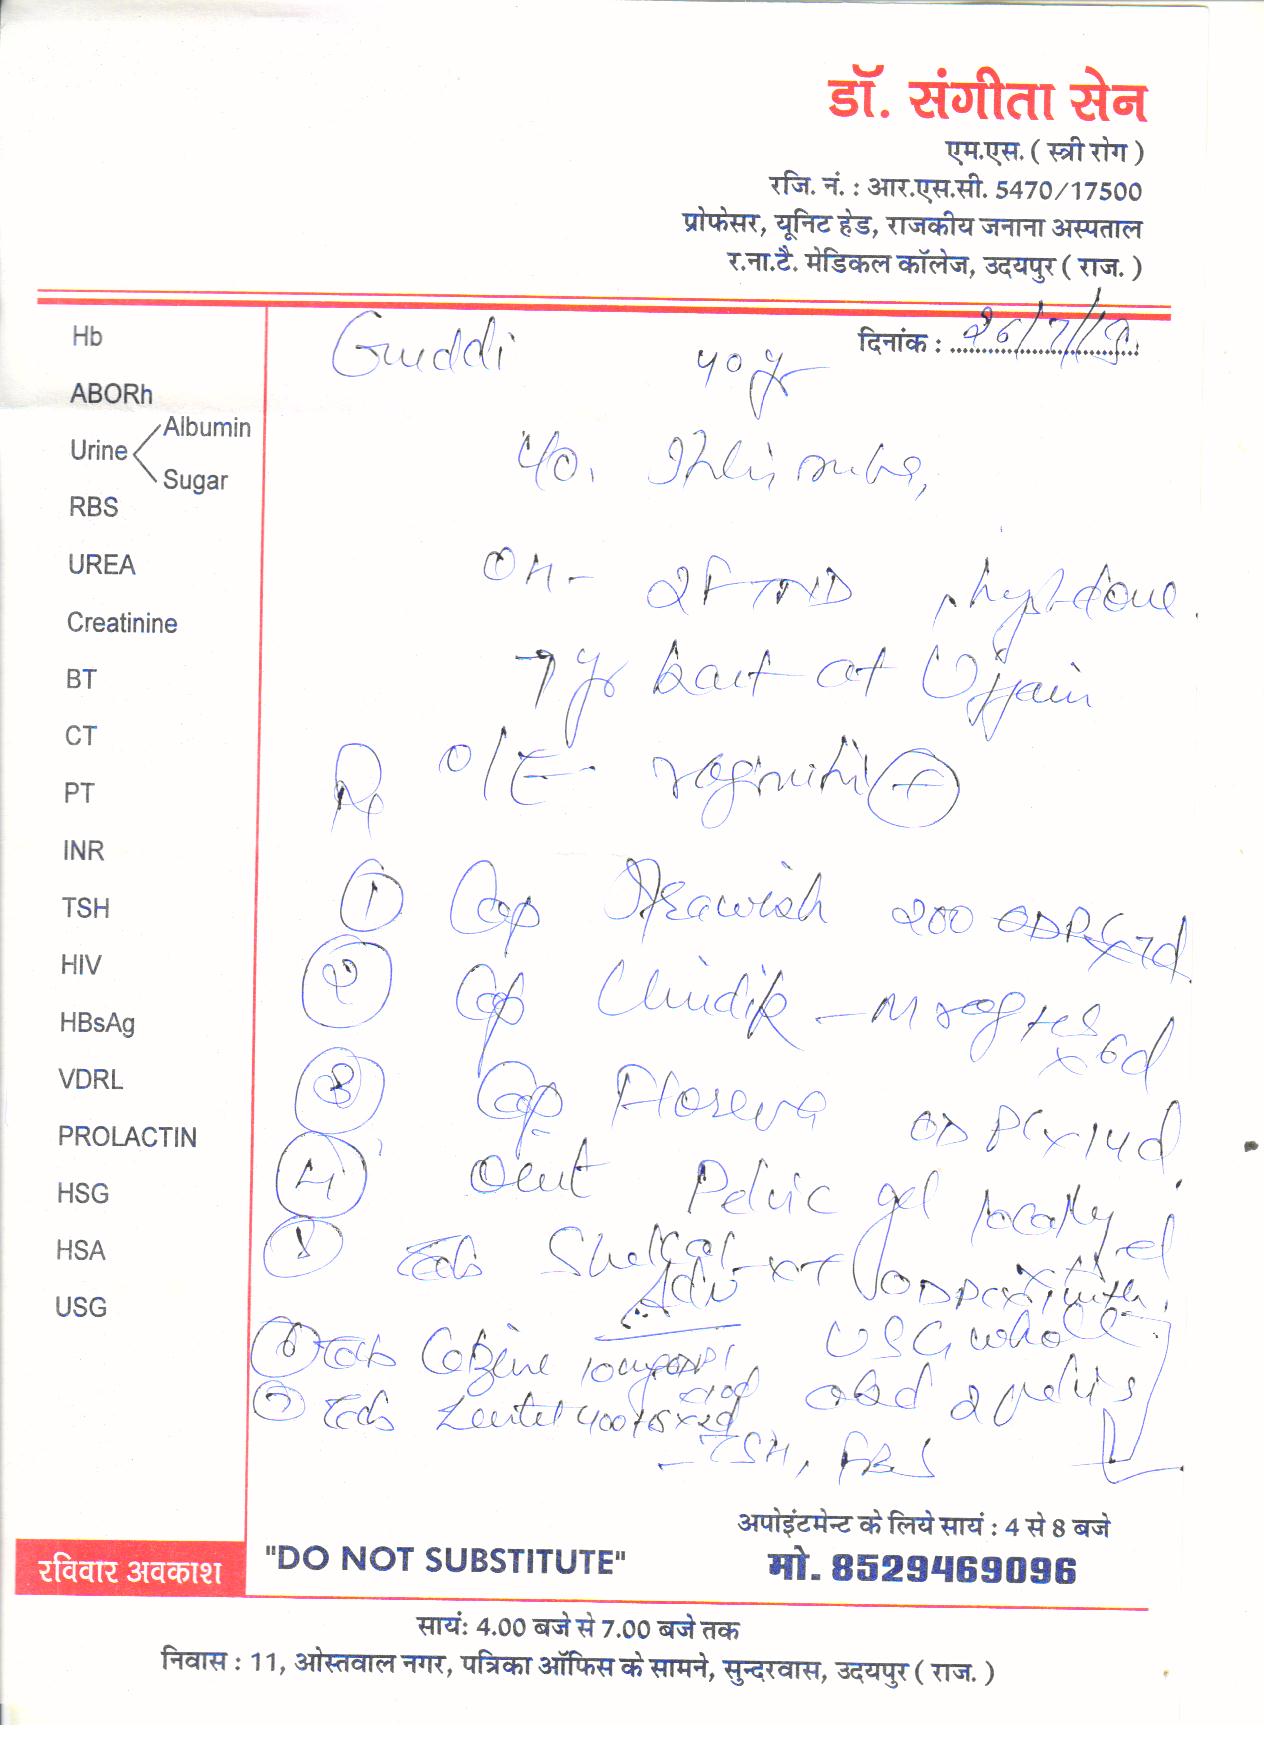 डॉ. संगीता सेन
एम.एस. ( स्त्री रोग )
रजि. नं. : आर.एस.सी. 5470/17500
प्रोफेसर, यूनिट हेड, राजकीय जनाना अस्पताल
र.ना.टै. मेडिकल कॉलेज, उदयपुर ( राज. )
दिनांक : 26/7/19
Guddi 40 yr
Hb
ABORh
Urine Albumin
Sugar
RBS
UREA
Creatinine
BT
CT
PT
INR
TSH
HIV
HBsAg
VDRL
PROLACTIN
HSG
HSA
USG
OH- 2FTND hyst done
7 yr back at Ujjain
Rx O/E- vaginitis +
1 Cap 200
2 Cap x 6d
3 Cap Floreva OD PC x 14d
4 Oint Pelvic gel locally
5 Tab Shelcal-XT OD PC
Adv
USG whole
6 Tab 10mg abd & pelvis
7 Tab Zentel 400
- TSH, FBS
अपोइंटमेन्ट के लिये सायं : 4 से 8 बजे
रविवार अवकाश
"DO NOT SUBSTITUTE"
मो. 8529469096
सायं: 4.00 बजे से 7.00 बजे तक
निवास : 11, ओस्तवाल नगर, पत्रिका ऑफिस के सामने, सुन्दरवास, उदयपुर ( राज. )